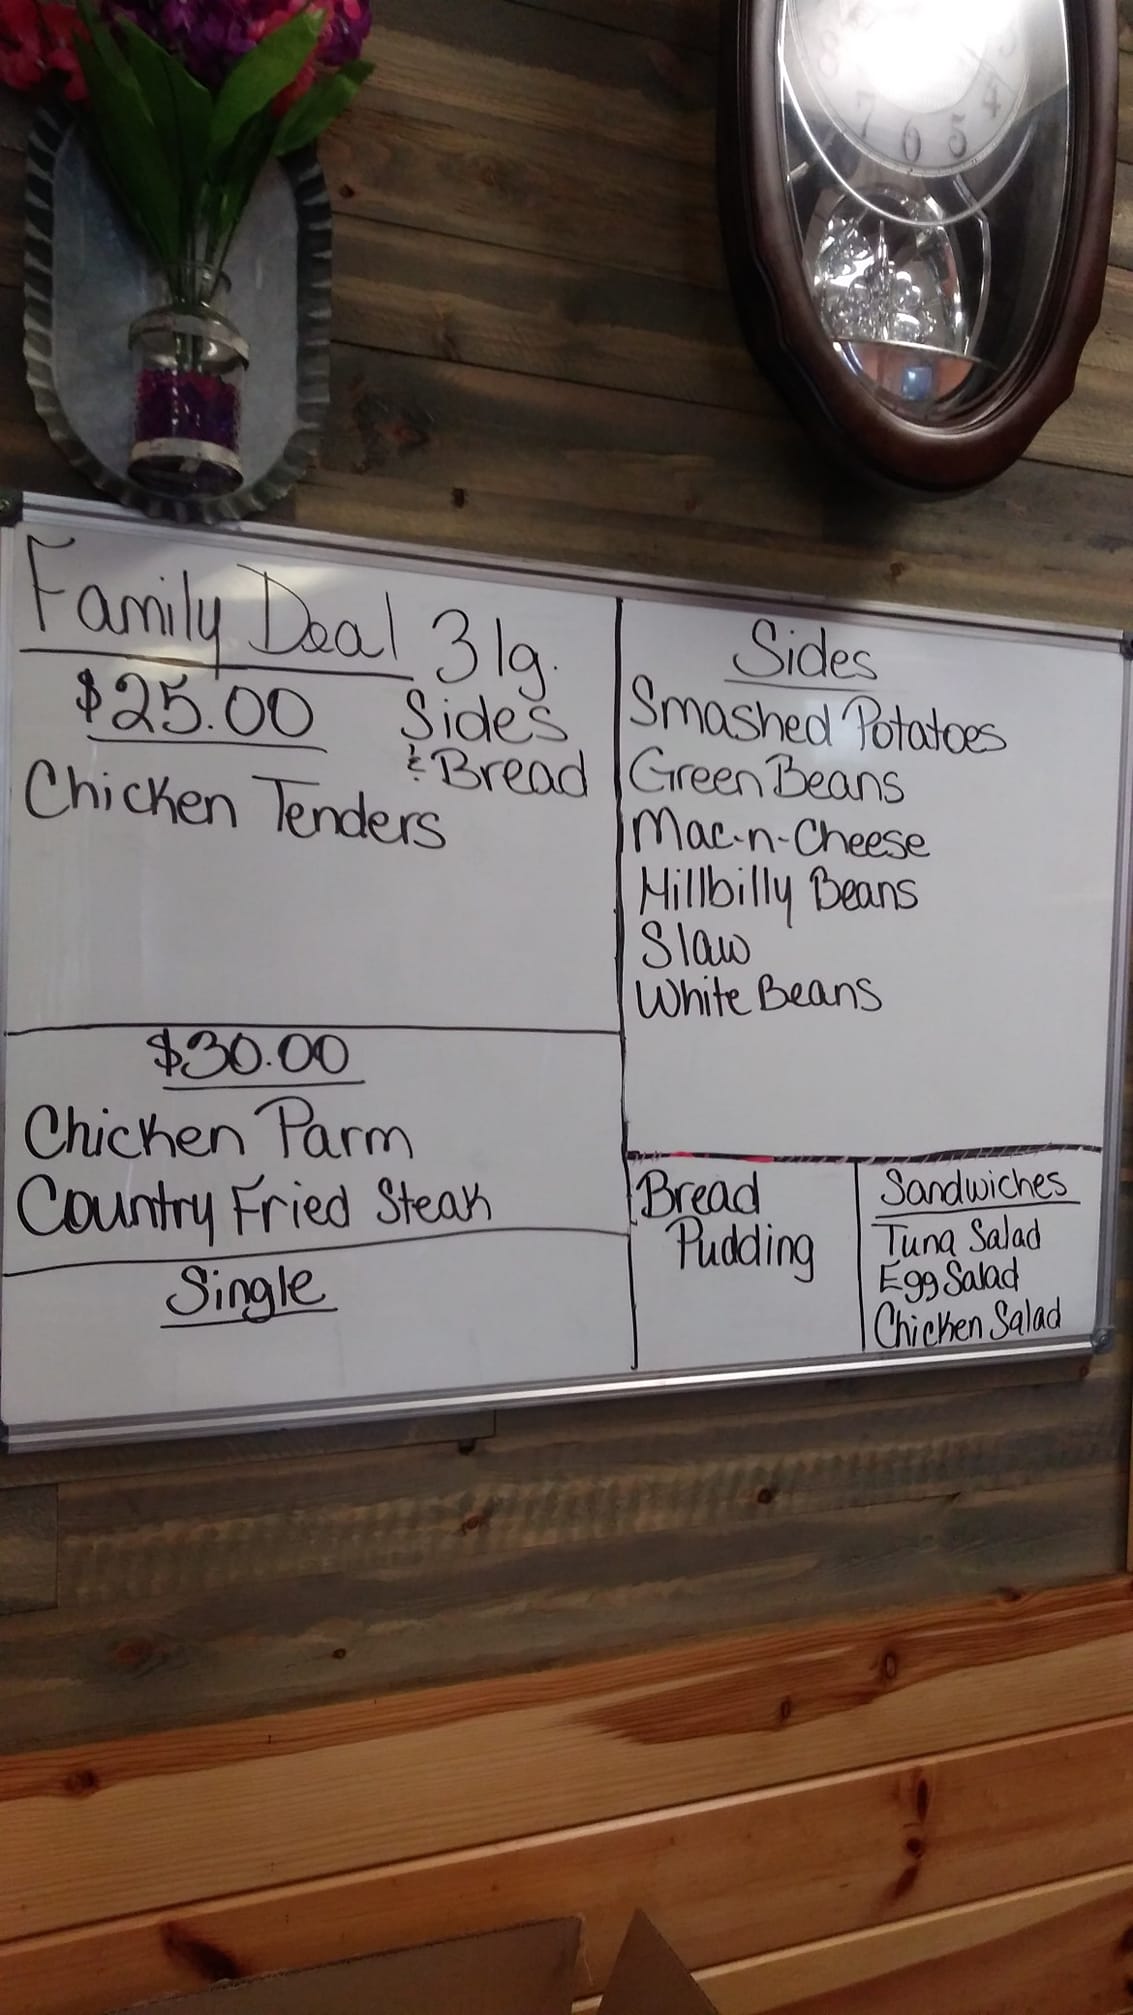 8
7
6
5
4
3
Family Deal 3 lg.
$25.00 Sides
& Bread
Chicken Tenders
$30.00
Chicken Parm
Country Fried Steak
Single
Sides
Smashed Potatoes
Green Beans
Mac-n-Cheese
Hillbilly Beans
Slaw
White Beans
Bread
Pudding
Sandwiches
Tuna Salad
Egg Salad
Chicken Salad